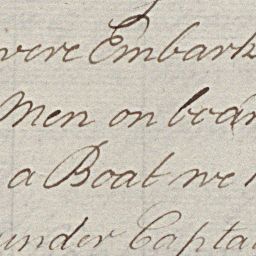 were Embark
Men on boar
a Boat we
under Capta